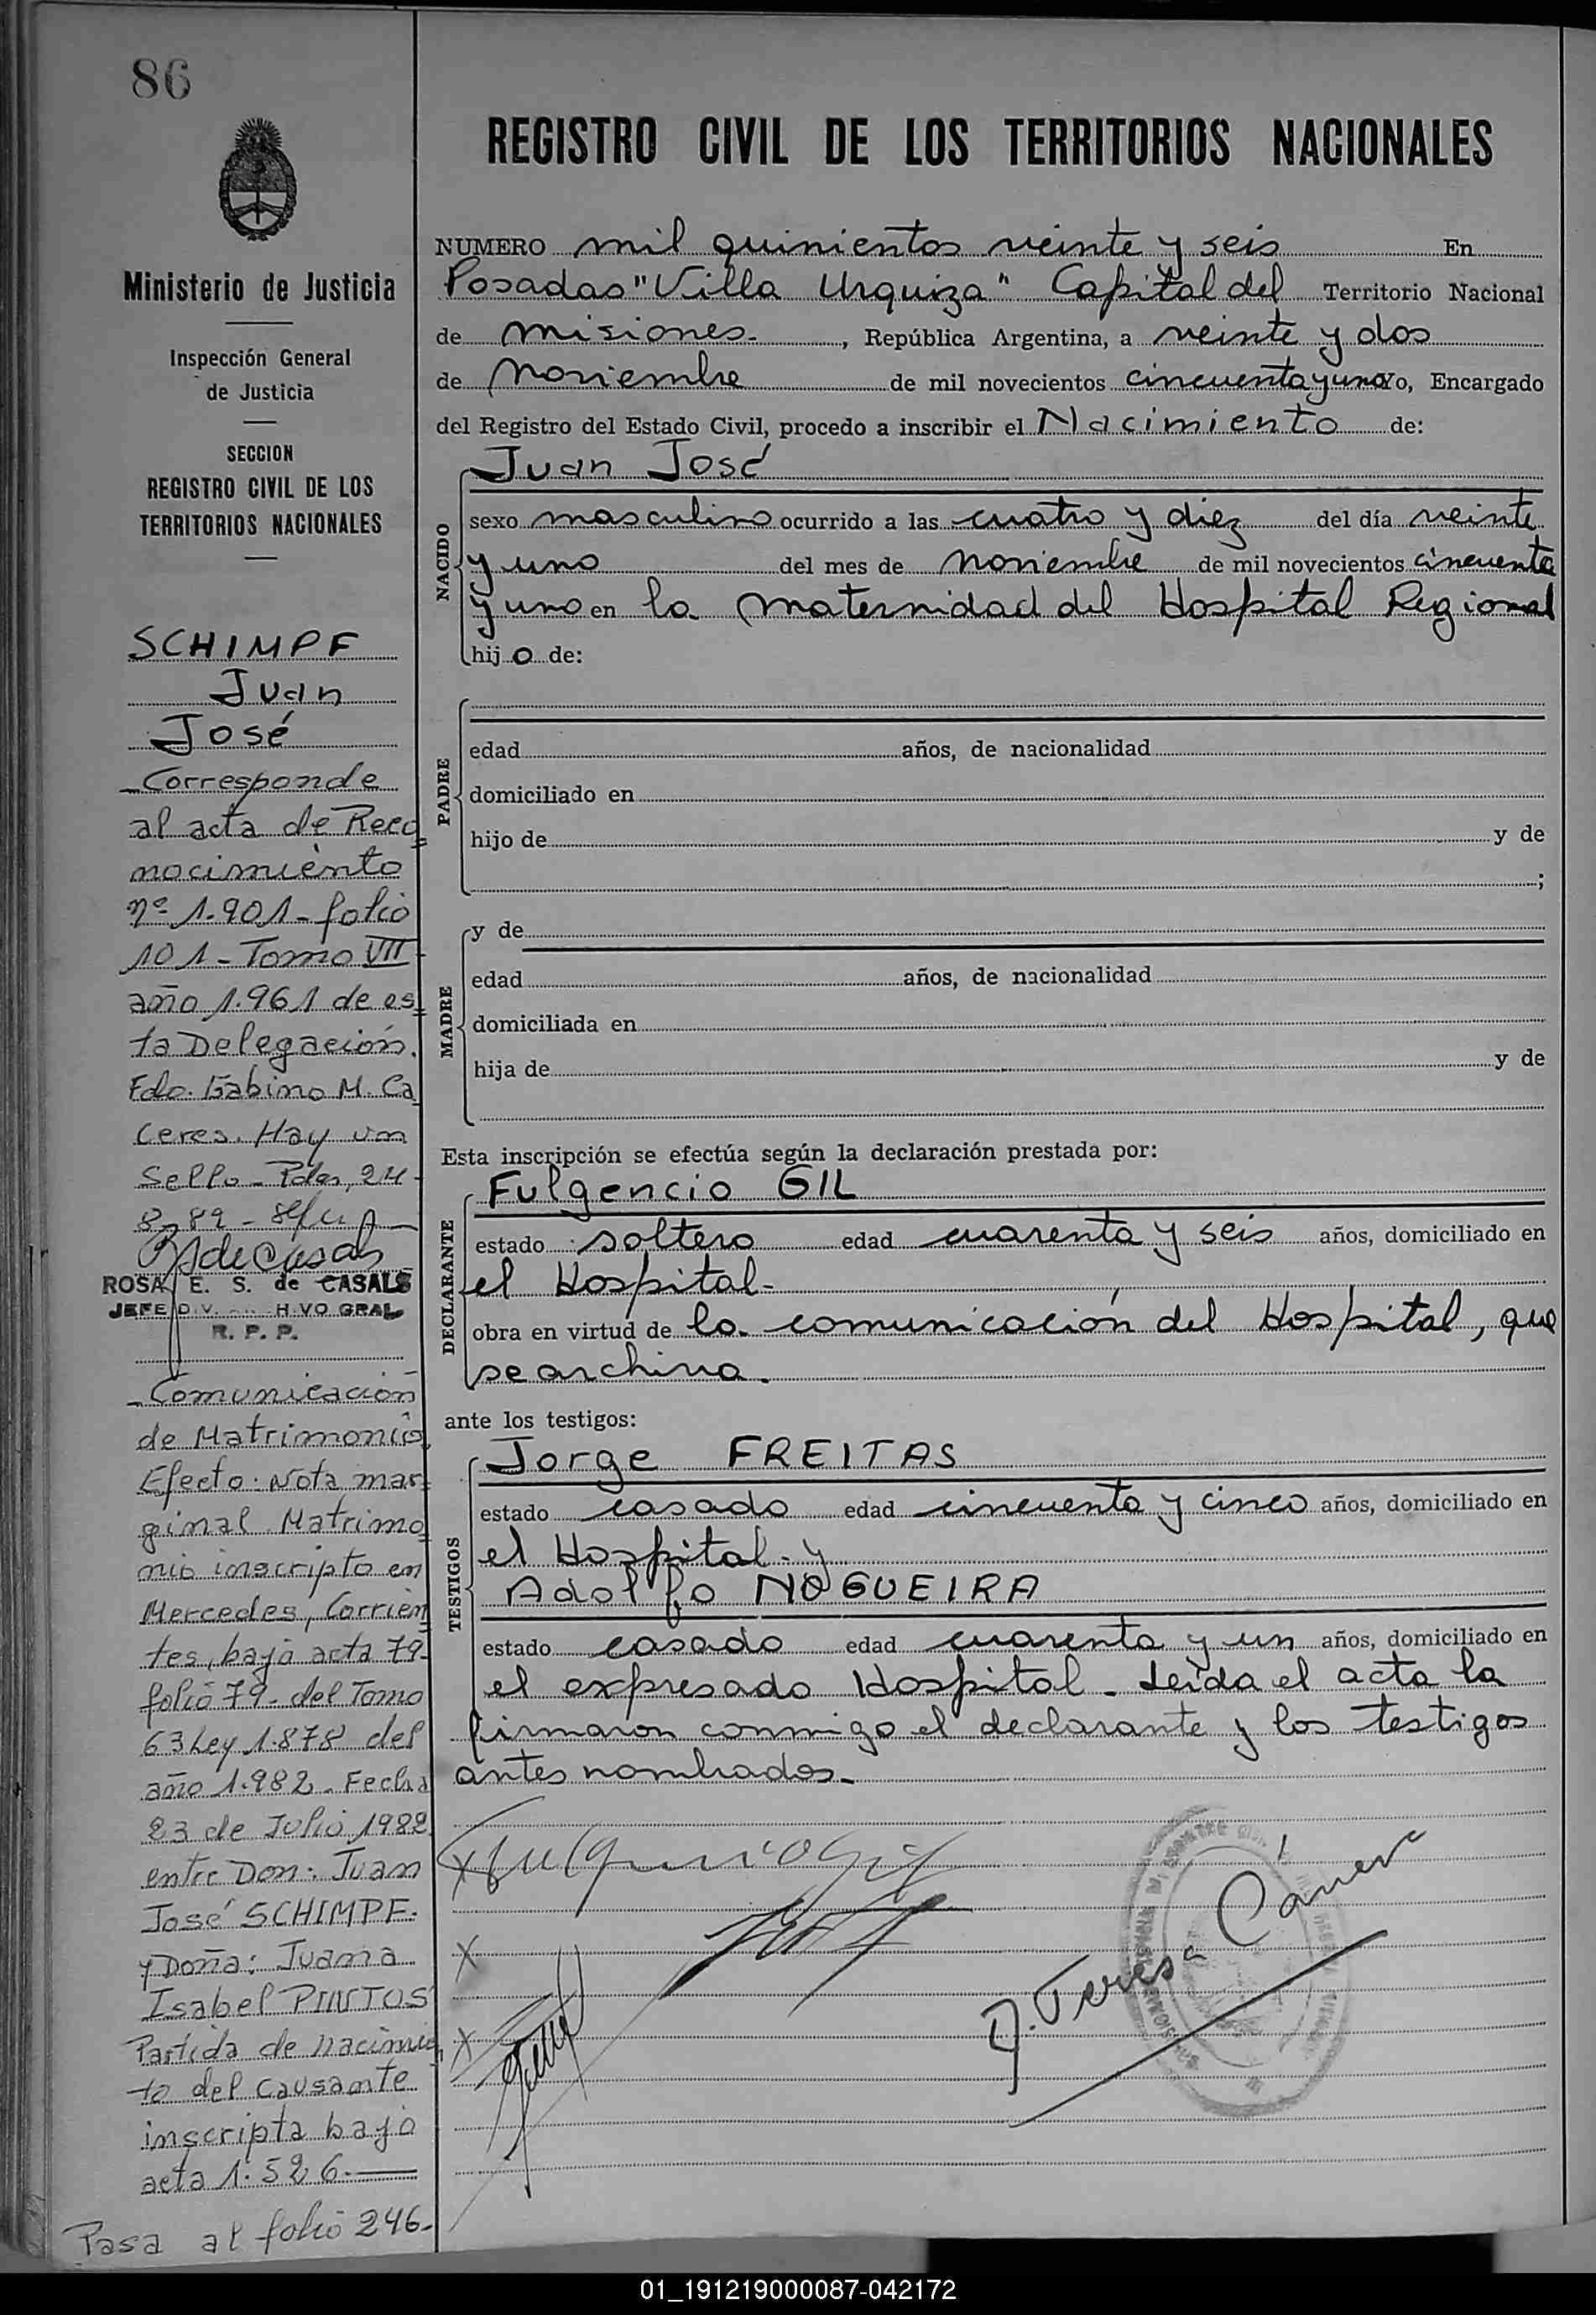 86
Ministerio de Justicia
Inspección General
de Justicia
SECCION
REGISTRO CIVIL DE LOS
TERRITORIOS NACIONALES
SCHIMPF
Juan
José
Corresponde
al acta de Reco
nocimiento
nº 1.901 - folio
101 - Tomo VII
año 1.961 de es
ta Delegación.
Fdo. Gabino M. Ca
ceres. Hay un
Sello - Pdas, 24
8-89 -
ROSA E. S. de CASALS
JEFE DIV. H.VO GRAL
R. P. P.
- Comunicación
de Matrimonio
Efecto: Nota mar
ginal Matrimo
nio inscripto en
Mercedes, Corrien
tes, bajo acta 79-
folio 79 - del Tomo
63 Ley 1.878 del
año 1.982 - Fecha
23 de Julio 1982
entre Don: Juan
José SCHIMPF.
y Doña: Juana
Isabel PINTOS
Partida de nacimie
to del causante
inscripta bajo
acta 1.526.
Pasa al folio 246.
REGISTRO CIVIL DE LOS TERRITORIOS NACIONALES
NUMERO mil quinientos veinte y seis En
Posadas "Villa Urquiza" Capital del Territorio Nacional
de Misiones - , República Argentina, a veinte y dos
de Noviembre de mil novecientos cincuenta y uno Yo, Encargado
del Registro del Estado Civil, procedo a inscribir el Nacimiento de:
NACIDO
Juan José
sexo masculino ocurrido a las cuatro y diez del día veinte
y uno del mes de noviembre de mil novecientos cincuenta
y uno en la maternidad del Hospital Regional
hij o de:
PADRE
edad años, de nacionalidad
domiciliado en
hijo de y de
;
MADRE
y de
edad años, de nacionalidad
domiciliada en
hija de y de
Esta inscripción se efectúa según la declaración prestada por:
DECLARANTE
Fulgencio GIL
estado soltero edad cuarenta y seis años, domiciliado en
el Hospital - ,
obra en virtud de la comunicación del Hospital, que
se archiva.
ante los testigos:
TESTIGOS
Jorge FREITAS
estado casado edad cincuenta y cinco años, domiciliado en
el Hospital - y
Adolfo NOGUEIRA
estado casado edad cuarenta y un años, domiciliado en
el expresado Hospital - Leída el acta la
firmaron conmigo el declarante y los testigos
antes nombrados.-
x Fulgencio Gil
x
x
Teresa
01_191219000087-042172